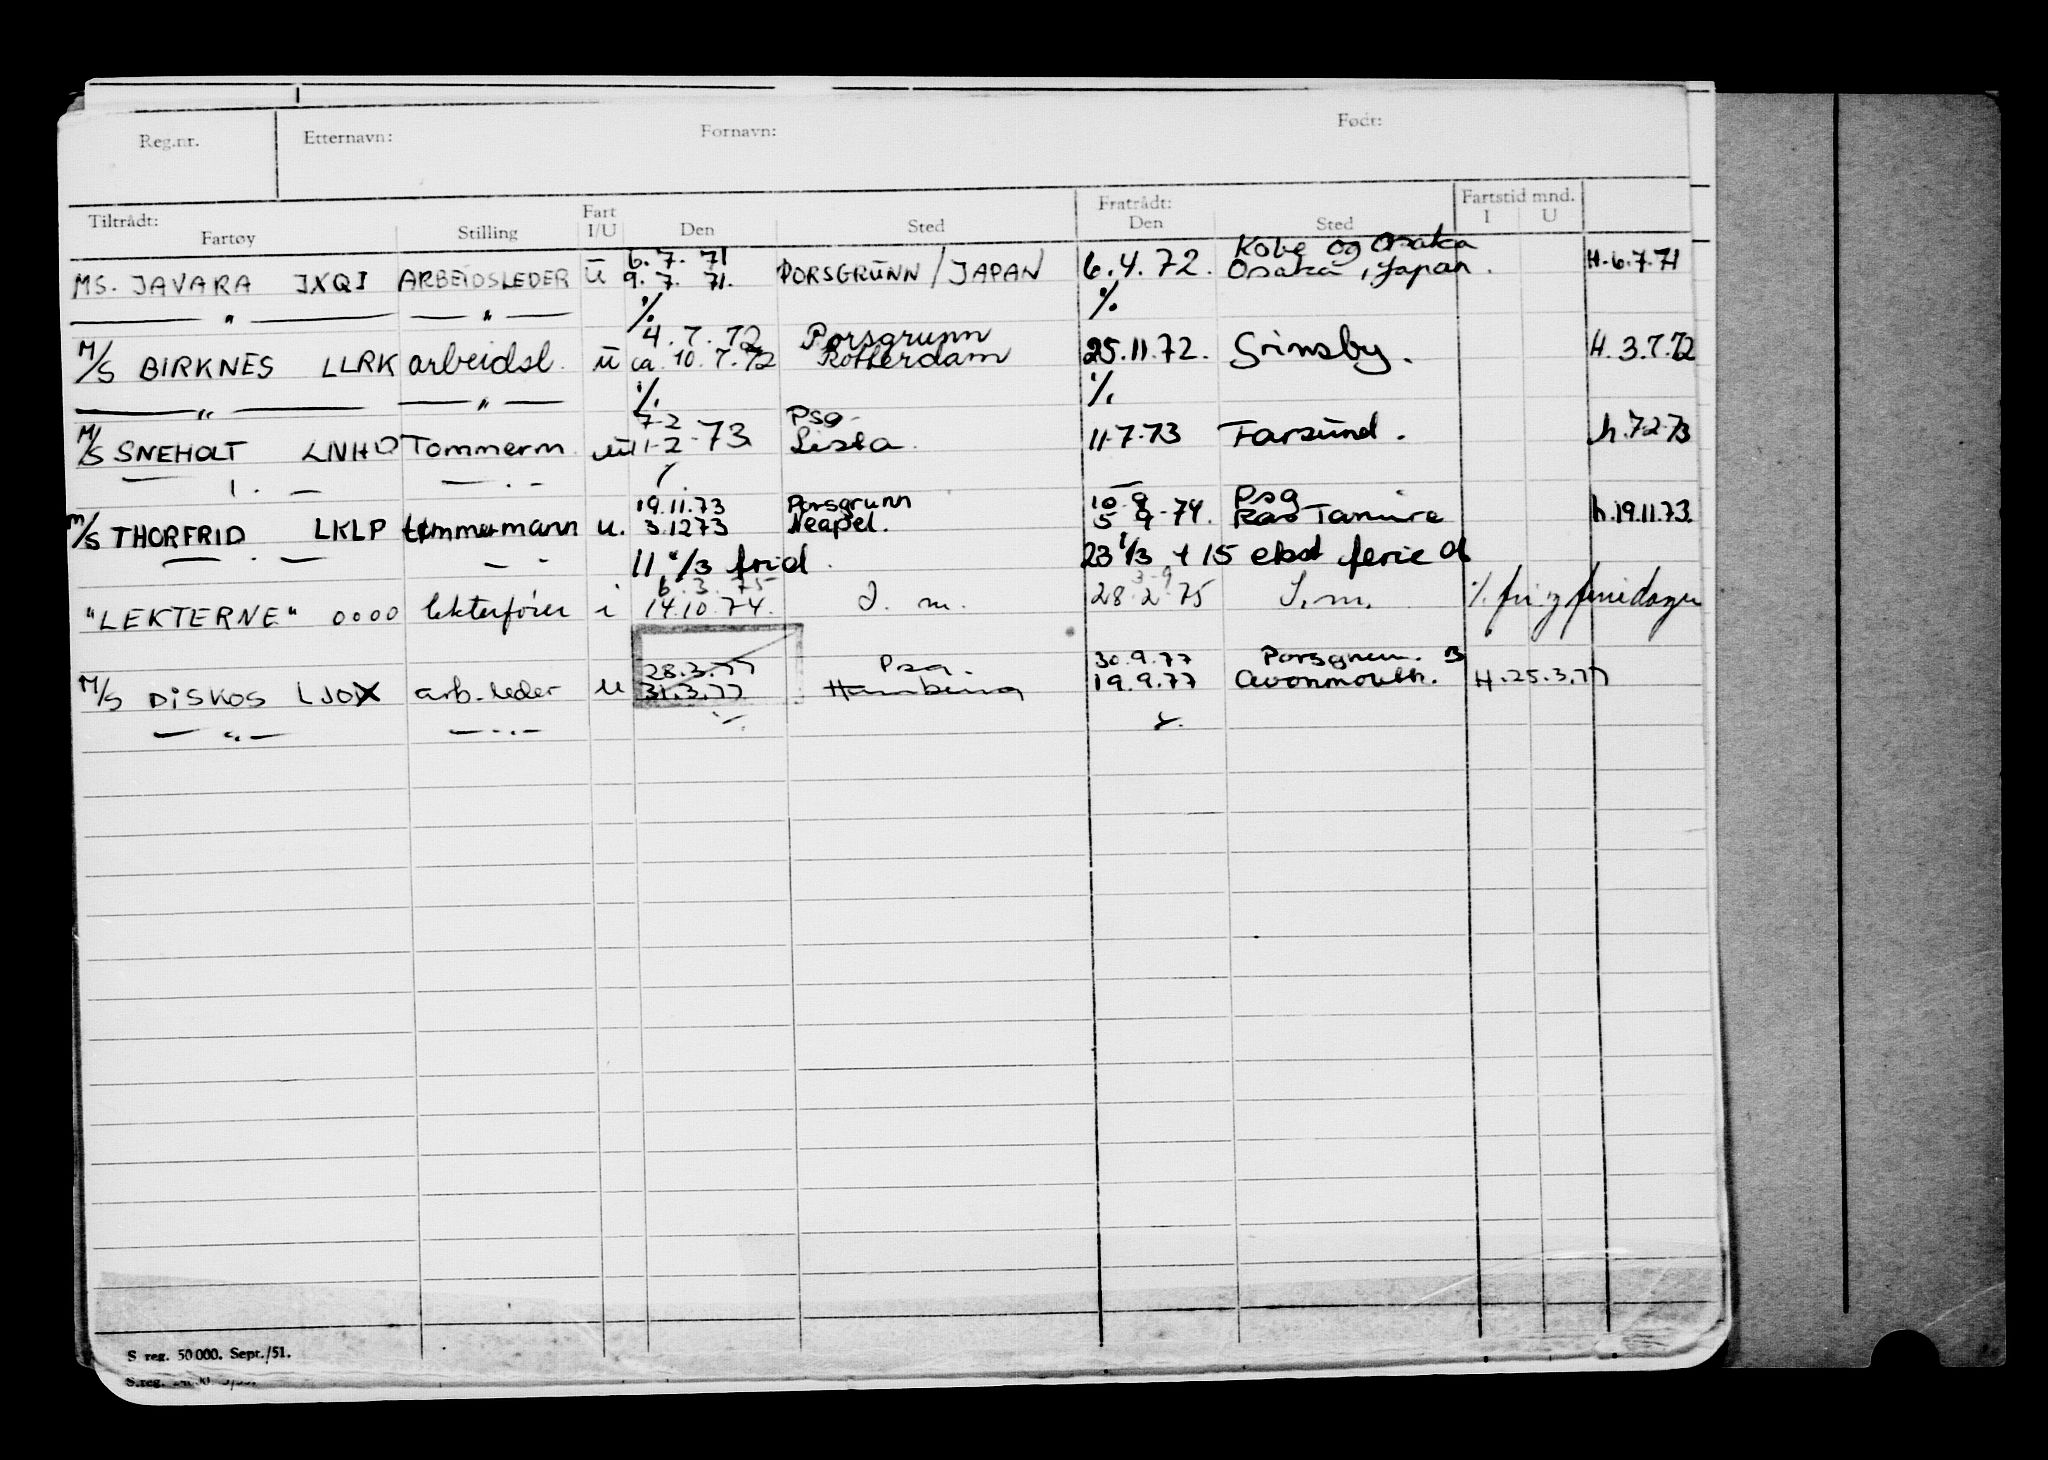 Reg.nr. Etternavn: Fornavn: Født:
Tiltrådt: Fratrådt: Fartstid mnd.
Fartøy Stilling Fart I/U Den Sted Den Sted I U
6.7.71 Kobe og Osaka
MS. JAVARA JXQI ARBEIDSLEDER U 9.7.71. PORSGRUNN/JAPAN 6.4.72. Osaka, Japan. H.6.7.71
— " — — " — ·/. ·/.
4.7.72 Porsgrunn
M/S BIRKNES LLRK arbeidsl. u ca. 10.7.72 Rotterdam 25.11.72. Grimsby. H.3.7.72
— " — — " — ·/. ·/.
7-2 Psg.
M/S SNEHOLT LNHO Tømmerm. u 11-2-73 Lista. 11-7-73 Farsund. h.7.2.73
19.11.73 Porsgrunn 10-9 Psg
M/S THORFRID LKLP tømmermann u. 3.1273 Neapel. 5 9-74. Ras Tanura h.19.11.73.
— . — — . — 11 2/3 frid. 23 1/3 + 15 ekst ferie d
6.3.75 3-9
"LEKTERNE" 0000 lekterfører i 14.10.74. I. m. 28.2.75 I.m. ·/. fri og feriedager
28.3.77 Psg. 30.9.77 Porsgrunn.
M/S DISKOS LJOX arb.leder u 31.3.77 Hamburg 19.9.77 Avonmouth. H.25.3.77
— " — — . . — ·/.
S reg. 50 000. Sept./51.
S.reg.